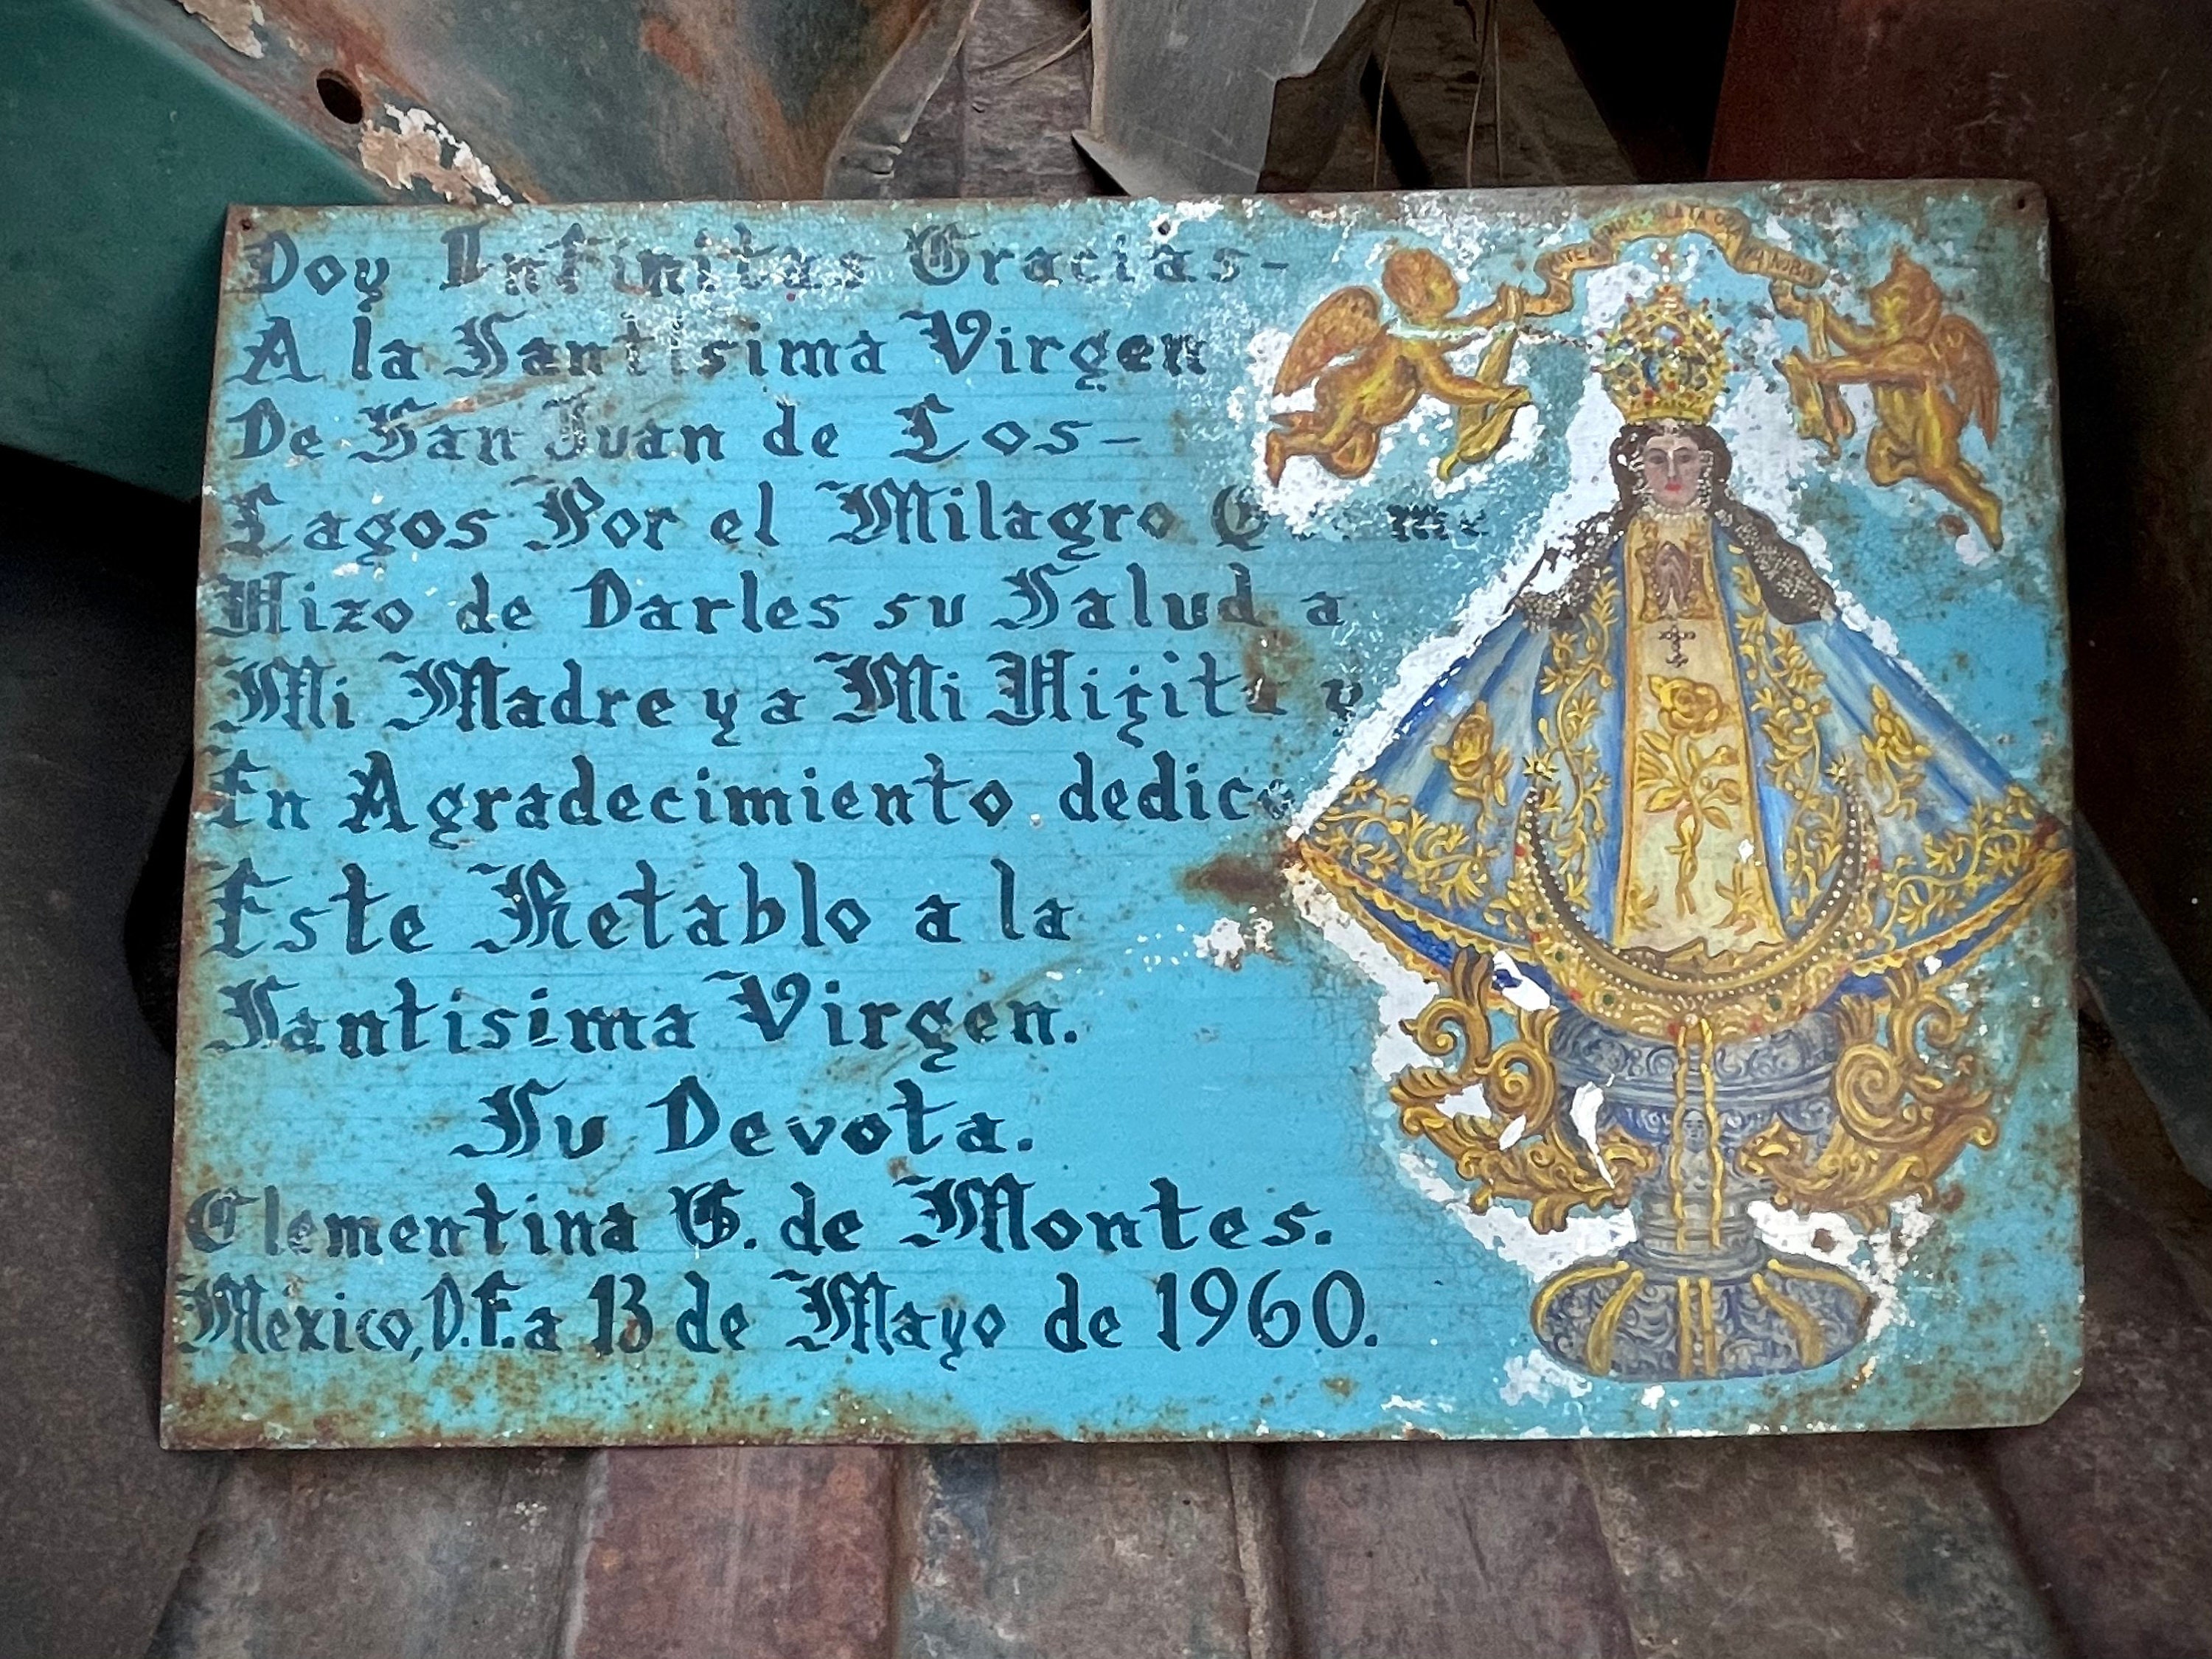 Doy Infinitas Gracias-
A la Santisima Virgen
De San Juan de Los-
Lagos Por el Milagro me
Hizo de Darles su Salud a
Mi Madre y a Mi Hijita y
En Agradecimiento dedico
Este Retablo a la
Santisima Virgen.
Su Devota.
Clementina G. de Montes.
México, D.F. a 13 de Mayo de 1960.